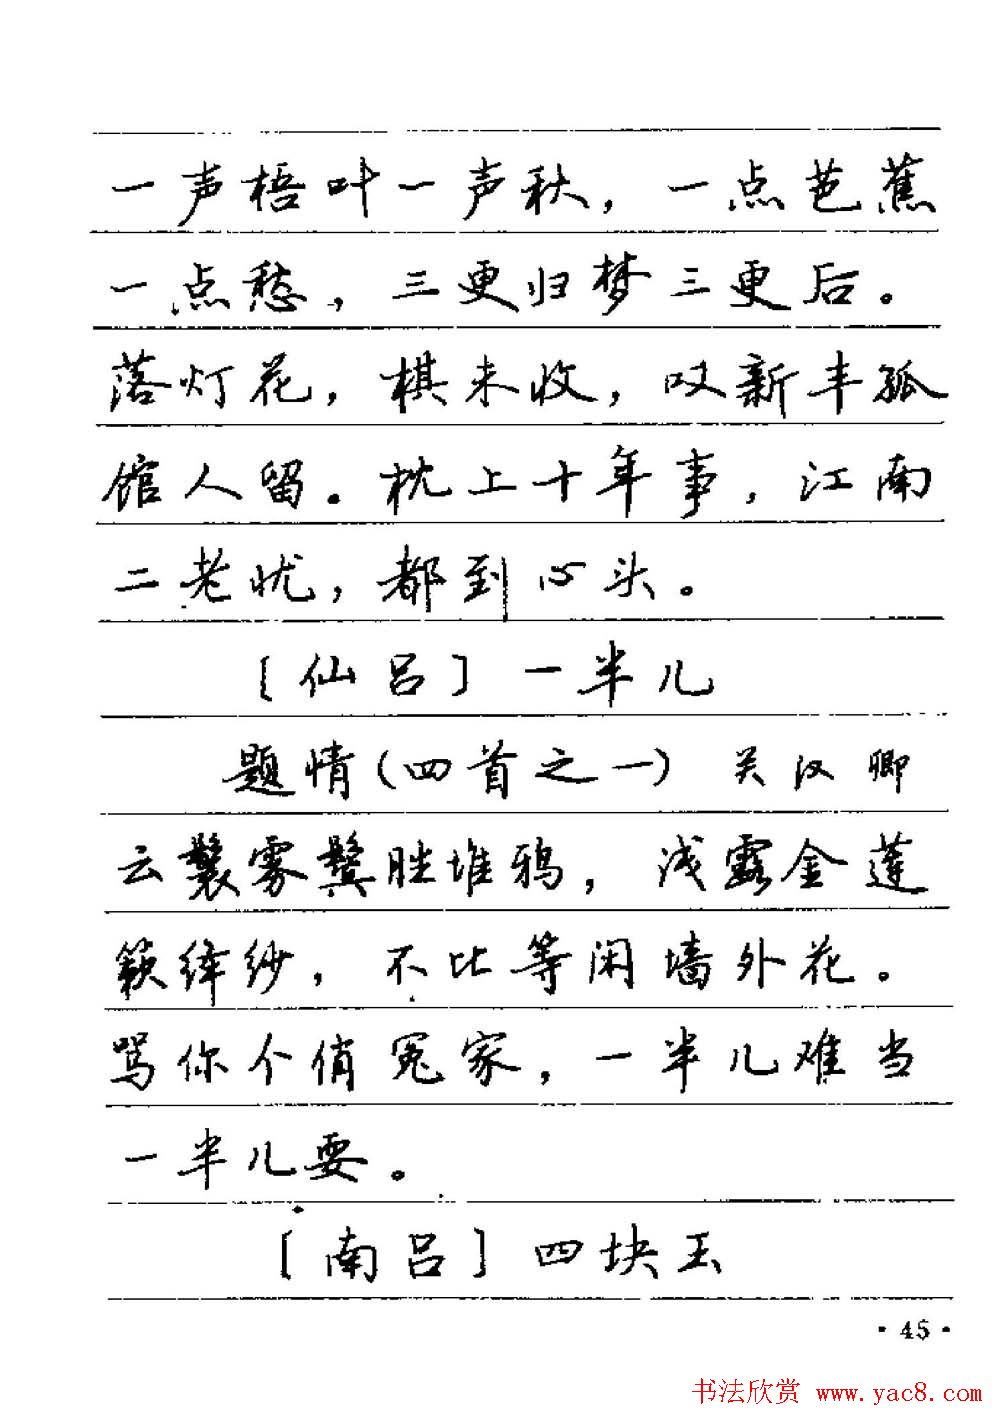 一声梧叶一声秋，一点芭蕉
一点愁，三更归梦三更后。
落灯花，棋未收，叹新丰孤
馆人留。枕上十年事，江南
二老忧，都到心头。
〔仙吕〕一半儿
题情(四首之一) 关汉卿
云鬟雾鬓胜堆鸦，浅露金莲
簌绛纱，不比等闲墙外花。
骂你个俏冤家，一半儿难当
一半儿耍。
〔南吕〕四块玉
·45·
书法欣赏 www.yac8.com